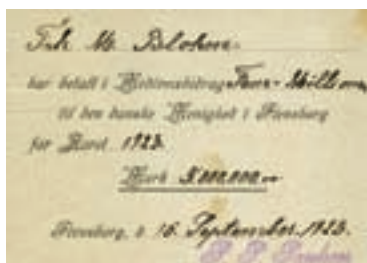 Frk. M. Blohm.
har betalt i Medlemsbidrag Fem-Millioner
til den danske Menighed i Flensborg
for Aaret 1923.
Mark 5.000.000
Flensborg, d. 16. September 1923.